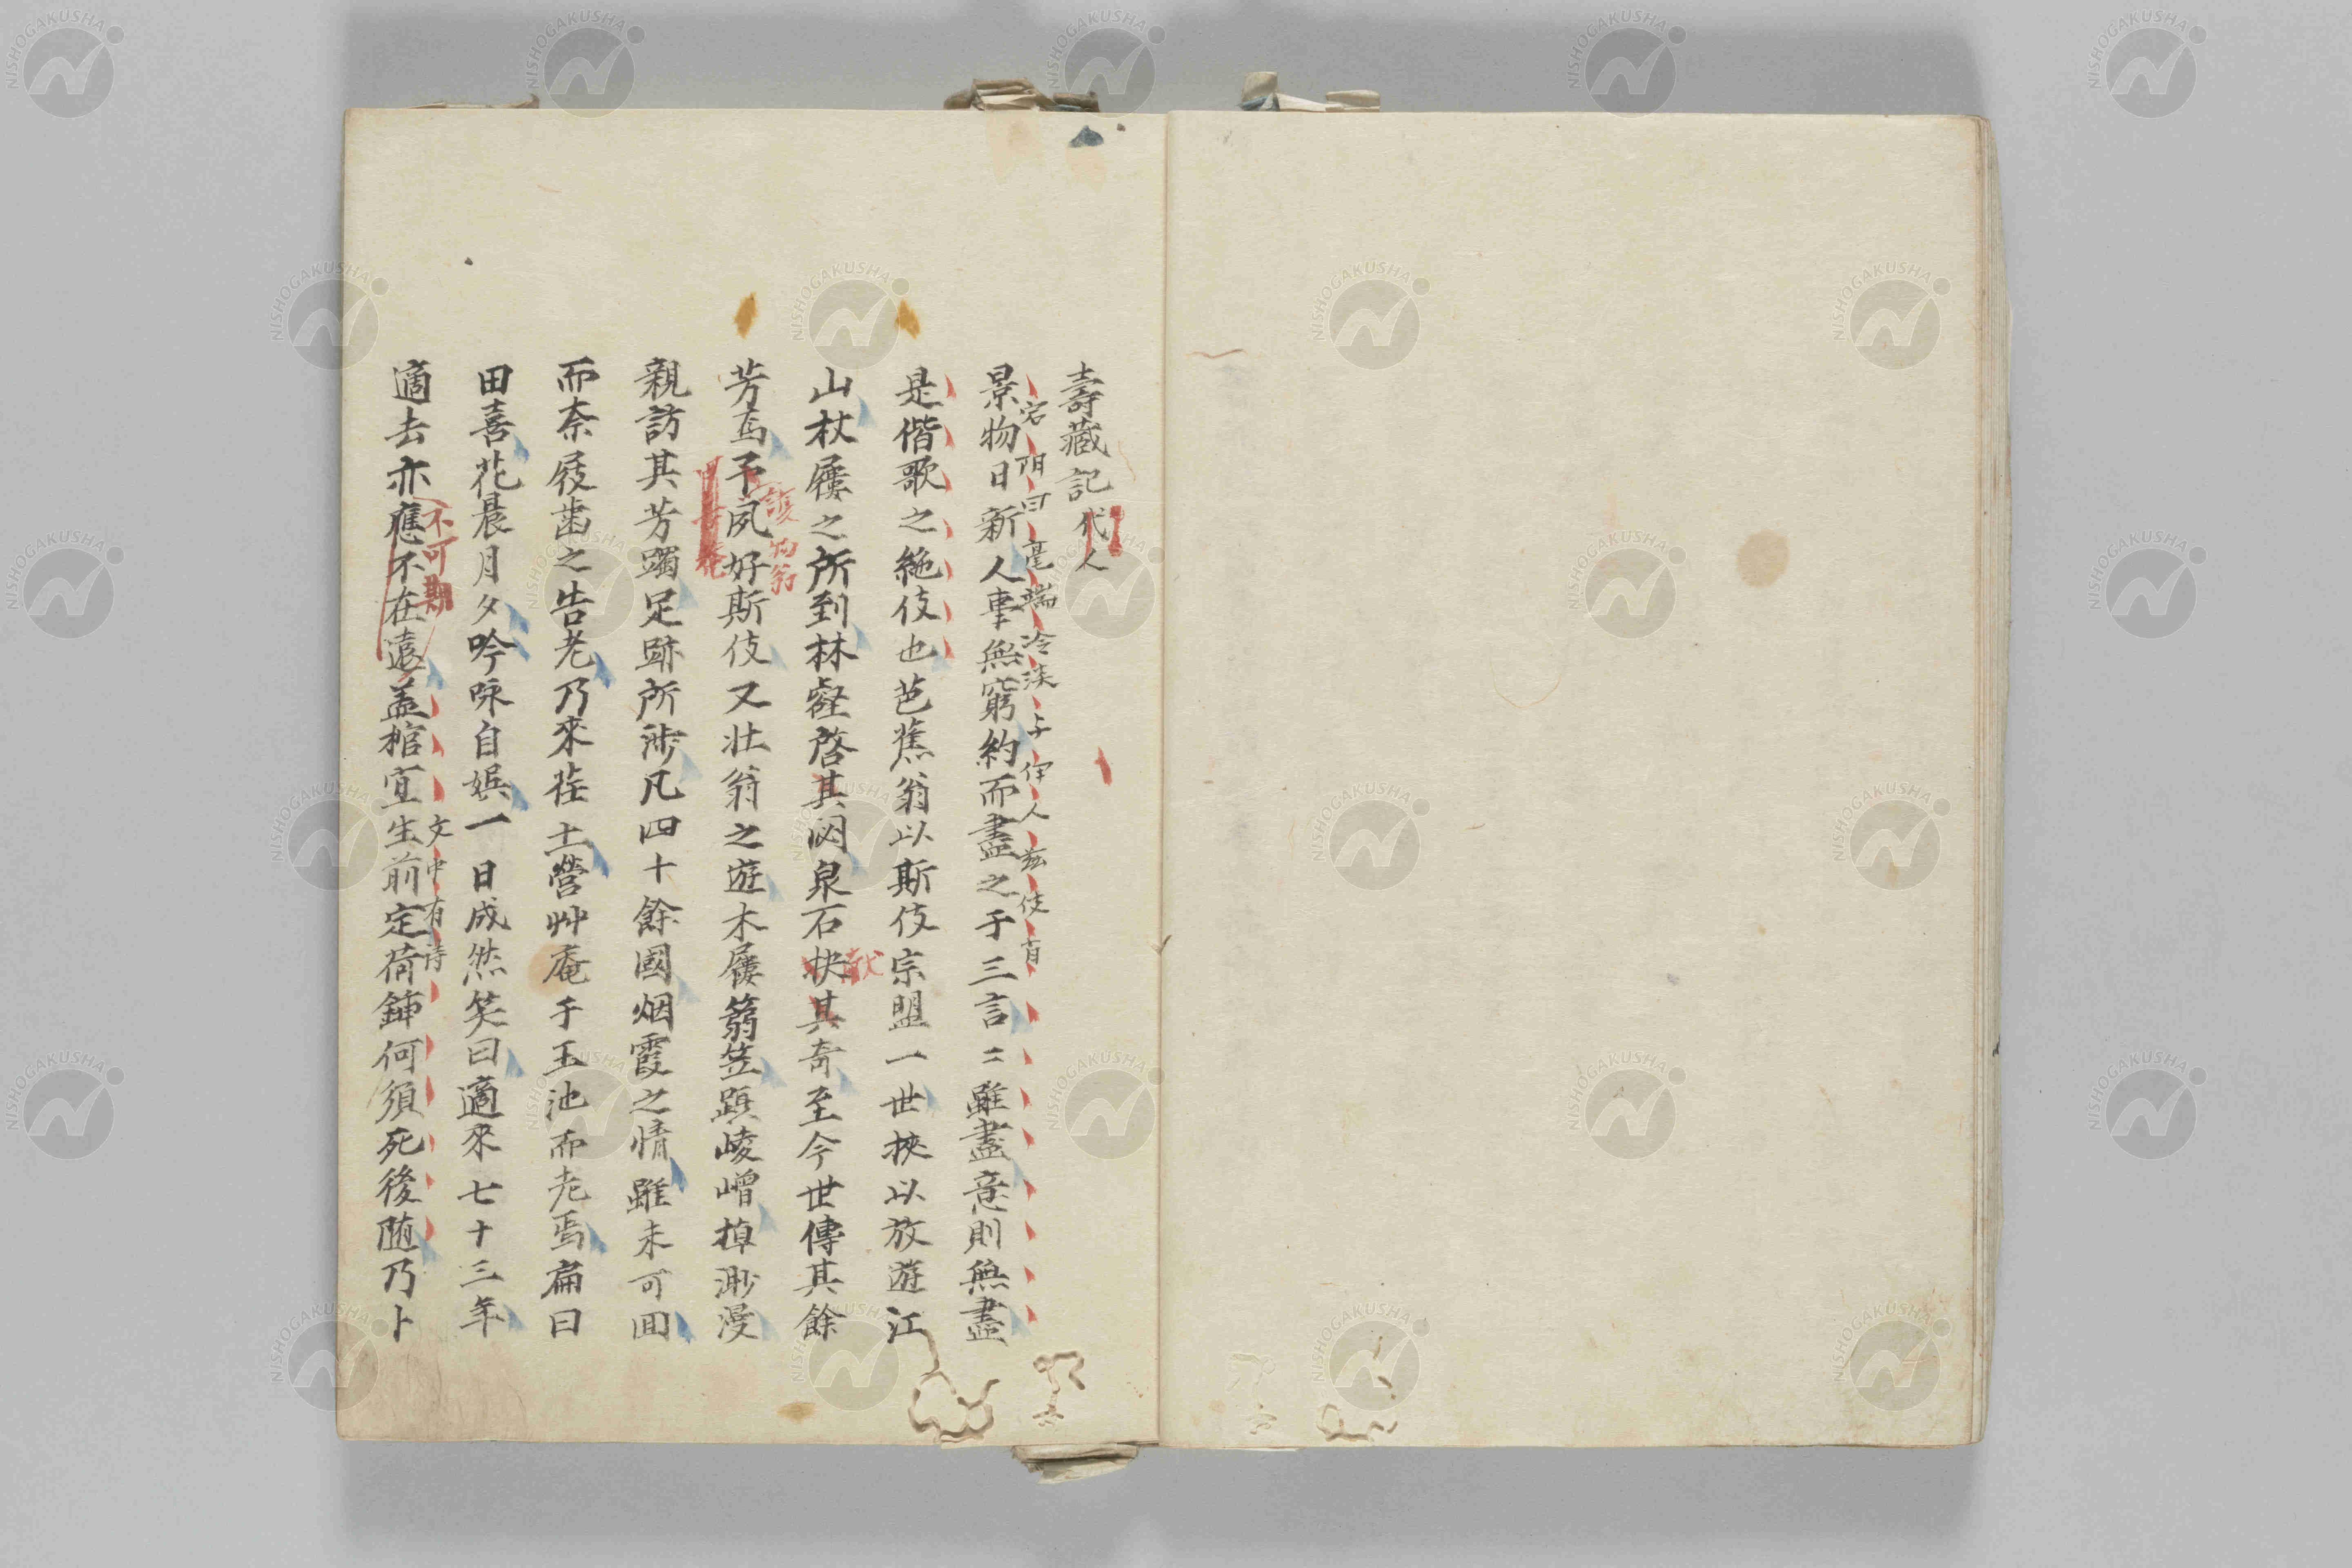 壽藏記代人
景物日新人事無窮約而盡之于三言〻雖盡意則無盡
宕陰曰毫端冷淡与俳人兹伎肖
是偕歌之絶伎也芭蕉翁以斯伎宗盟一世挾以放遊江
山杖屨之所到林壑啓其閟泉石抉其奇至今世傳其餘
献
芳焉予夙好斯伎又壮翁之遊木屨篛笠躡崚嶒掉渺漫
物翁
親訪其芳躅足跡所渉凡四十餘國烟霞之情雖未可囬
而奈屐齒之告老乃來莊土營艸庵于玉池而老焉扁曰
田喜花晨月夕吟咏自娯一日成然笑曰適來七十三年
適去亦應不在遠盖棺宜生前定荷鍤何須死後随乃卜
不可期
文中有詩
NISHOGAKUSHA